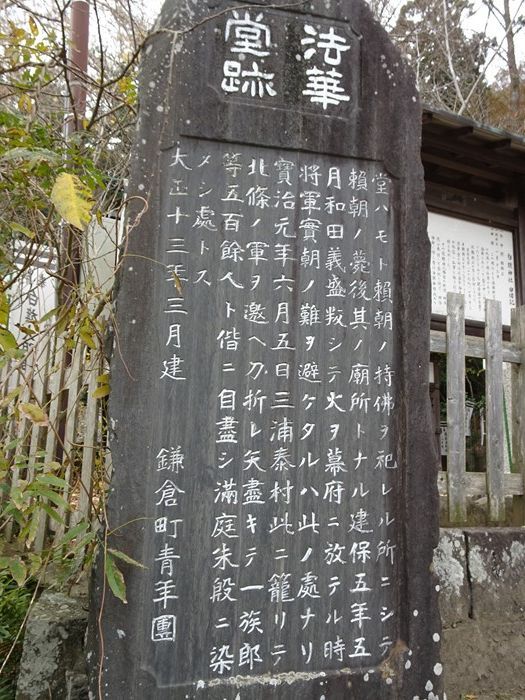 法華
堂跡
堂ハモト賴朝ノ持佛ヲ祀レル所ニシテ
賴朝ノ薨後其ノ廟所トナル建保五年五
月和田義盛叛シテ火ヲ幕府ニ放テル時
將軍實朝ノ難ヲ避ケタルハ此ノ處ナリ
寶治元年六月五日三浦泰村此ニ籠リテ
北條ノ軍ヲ邀ヘ刀折レ矢盡キテ一族郎
等五百餘人ト偕ニ自盡シ滿庭朱殷ニ染
メシ處トス
大正十三年三月建 鎌倉町青年團